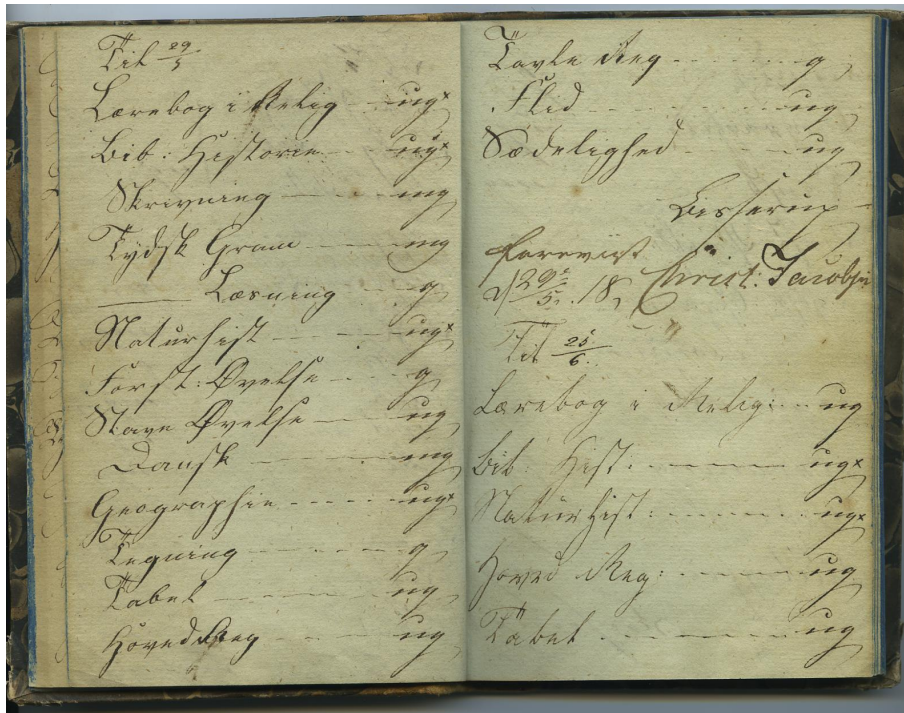 Til 29/5
Lærebog i Relig ug×
Bib: Historie ug×
Skrivning mg
Tydsk Gram mg
Læsning g
Naturhist ug×
Forst: Øvelse g
Stave Øvelse ug
Dansk mg
Geographie ug×
Tegning g
Tabel ug
Hoved Reg ug
Tavle Reg g
Flid ug
Sædelighed ug
Bisserup
Forevist
d 29/5 18 Christ: Jacobsen
Til 25/6
Lærebog i Relig: ug
Bib: Hist: ug×
Naturhist: ug×
Hoved Reg: ug
Tabel ug